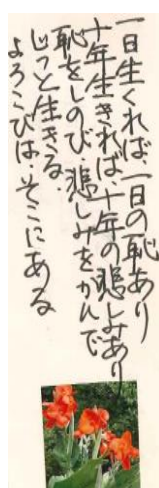 一日生くれば、一日の恥あり
十年生きれば、十年の悲しみあり
恥をしのび、悲しみをかんで
じっと生きる。
よろこびは、そこにある